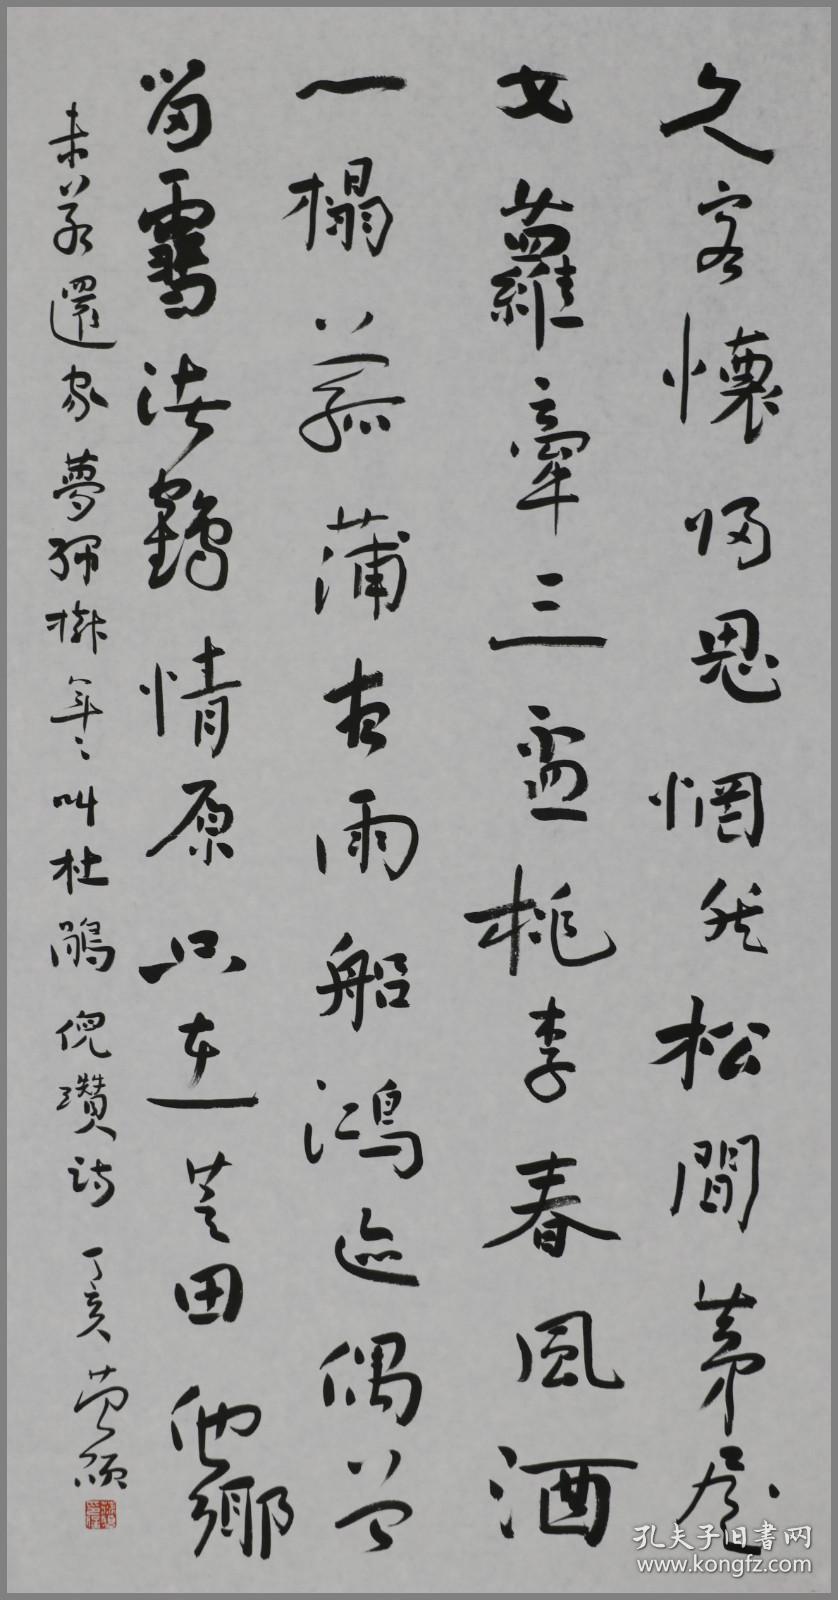 久客懷歸思惘然松間茅屋
女蘿牽三盃桃李春風酒
一榻菰蒲夜雨船鴻迹偶曾
留雪渚鶴情原只在芝田他鄉
未若還家夢綠樹年々叫杜鵑倪瓚詩丁亥
孔夫子旧書网
www.kongfz.com